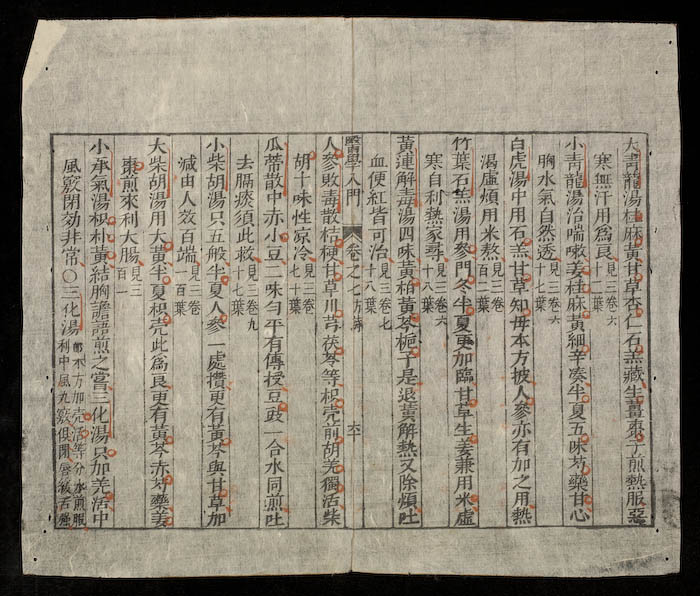 大青龍湯桂麻黃甘草杏仁石羔藏生薑棗子煎熱服惡
寒無汗用爲良 見三卷六十二葉
小青龍湯治喘嗽姜桂麻黃細辛凑半夏五味芍藥甘心
胸水氣自然透 見三卷六十七葉
白虎湯中用石羔甘草知母本方披人參亦有加之用熱
渴虛煩用米熬 見三卷百二葉
竹葉石羔湯用參門冬半夏更加臨甘草生姜兼用米虛
寒自利熱家尋 見三卷六十八葉
黃連解毒湯四味黃栢黃芩梔子是退黃解熱又除煩吐
血便紅皆可治 見三卷七十八葉
醫學入門 卷之七 六十
人參敗毒散桔梗甘草川芎茯苓等枳壳前胡羌獨活柴
胡十味性凉冷 見三卷七十葉
瓜蒂散中赤小豆二味勻平有傳授豆豉一合水同煎吐
去膈痰須此救 見三卷九十七葉
小柴胡湯只五般半夏人參一處攢更有黃芩與甘草加
減由人效百端 見三卷百一葉
大柴胡湯用大黃半夏枳壳此爲良更有黃芩赤芍藥姜
棗煎來利大膓 見三百一
小承氣湯枳朴黃結胸譫語煎之嘗三化湯只加羌活中
風竅閉効非常○三化湯 即本方加羌活等分水煎服利中風九竅俱閉唇緩舌強